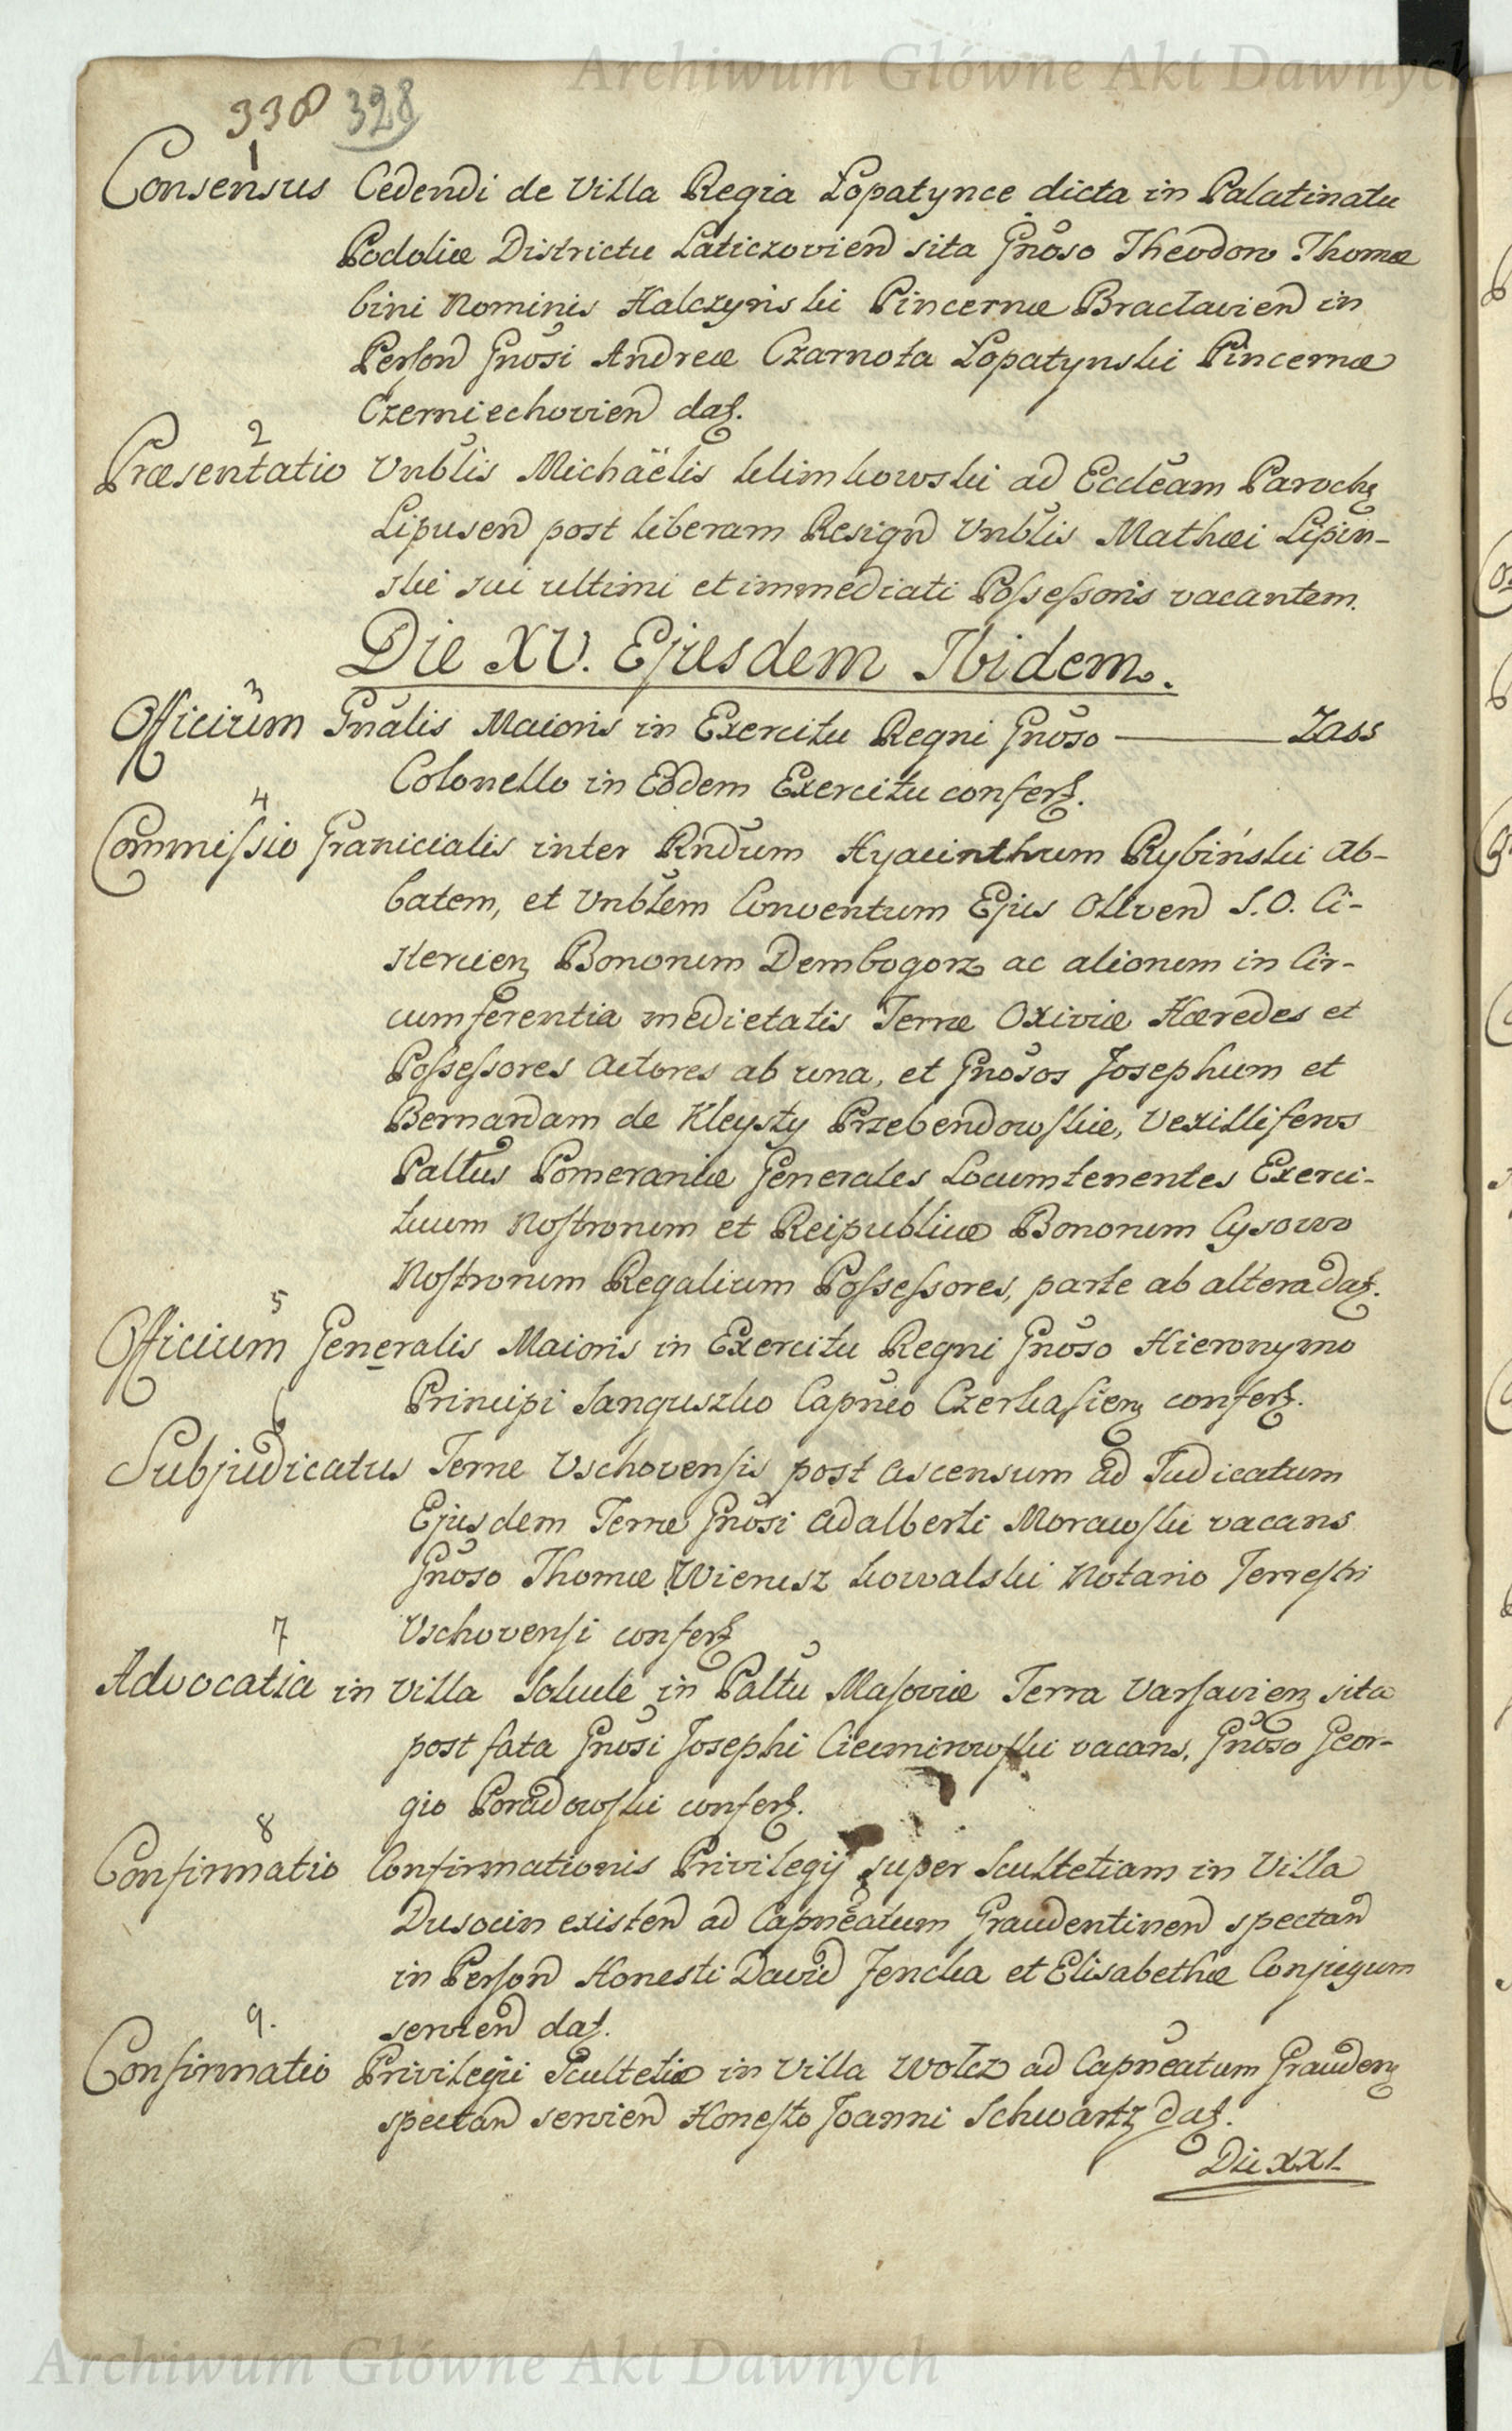 Archiwum Główne Akt Dawnych
338 328
1
Consensus Cedendi de Villa Regia Łopatynce dicta in Palatinatu
Podoliæ Districtu Laticzovien sita Gnoso Theodoro Thomæ
bini Nominis Halczyński Pincernæ Braclavien in
Person Gnosi Andreæ Czarnota Łopatynski Pincernæ
Czerniechovien dat.
2
Præsentatio Vnblis Michäelis Klimkowski ad Eccleam Paroch
Lipusen post liberam Resign Vnblis Mathæi Lipin-
ski sui ultimi et immediati Possessoris vacantem.
Die XV. Ejusdem Ibidem.
3
Officium Gnalis Maioris in Exercitu Regni Gnoso ——— Zass
Colonello in Eodem Exercitu confert.
4
Commissio Granicialis inter Rndum Hyacinthum Rybiński Ab-
batem, et Vnblem Conventum Ejus Oliven S. O. Ci-
stercien Bonorum Dembogorz ac aliorum in Cir-
cumferentia medietatis Terræ Oxiviæ Hæredes et
Possessores Actores ab una, et Gnosos Josephum et
Bernardam de Kleysty Przebendowskie, Vexilliferos
Paltus Pomeraniæ Generales Locumtenentes Exerci-
tuum Nostrorum et Reipublicæ Bonorum Cysowo
Nostrorum Regalium Possessores, parte ab altera dat.
5
Officium Generalis Maioris in Exercitu Regni Gnoso Hieronymo
Principi Sanguszko Capneo Czerkasien confert.
6
Subjudicatus Terræ Vschovensis post Ascensum ad Judicatum
Ejusdem Terræ Gnosi Adalberti Morawski vacans
Gnoso Thomæ Wierusz Kowalski Notario Terrestri
Vschovensi confert
7
Advocatia in Villa Solecle in Paltu Masoviæ Terra Varsavien sita
post fata Gnosi Josephi Cieciminrowski vacans, Gnoso Geor-
gio Poradowski confert.
8
Confirmatio Confirmationis Privilegij super Scultetiam in Villa
Dusocin existen ad Capneatum Graudentinen spectan
in Person Honesti David Jencka et Elisabethæ Conjugum
servien dat.
9.
Confirmatio Privilegii Scultetiæ in Villa Wolcz ad Capneatum Grauden
spectan servien Honesto Joanni Schwartz dat.
Die XXI.
Archiwum Główne Akt Dawnych